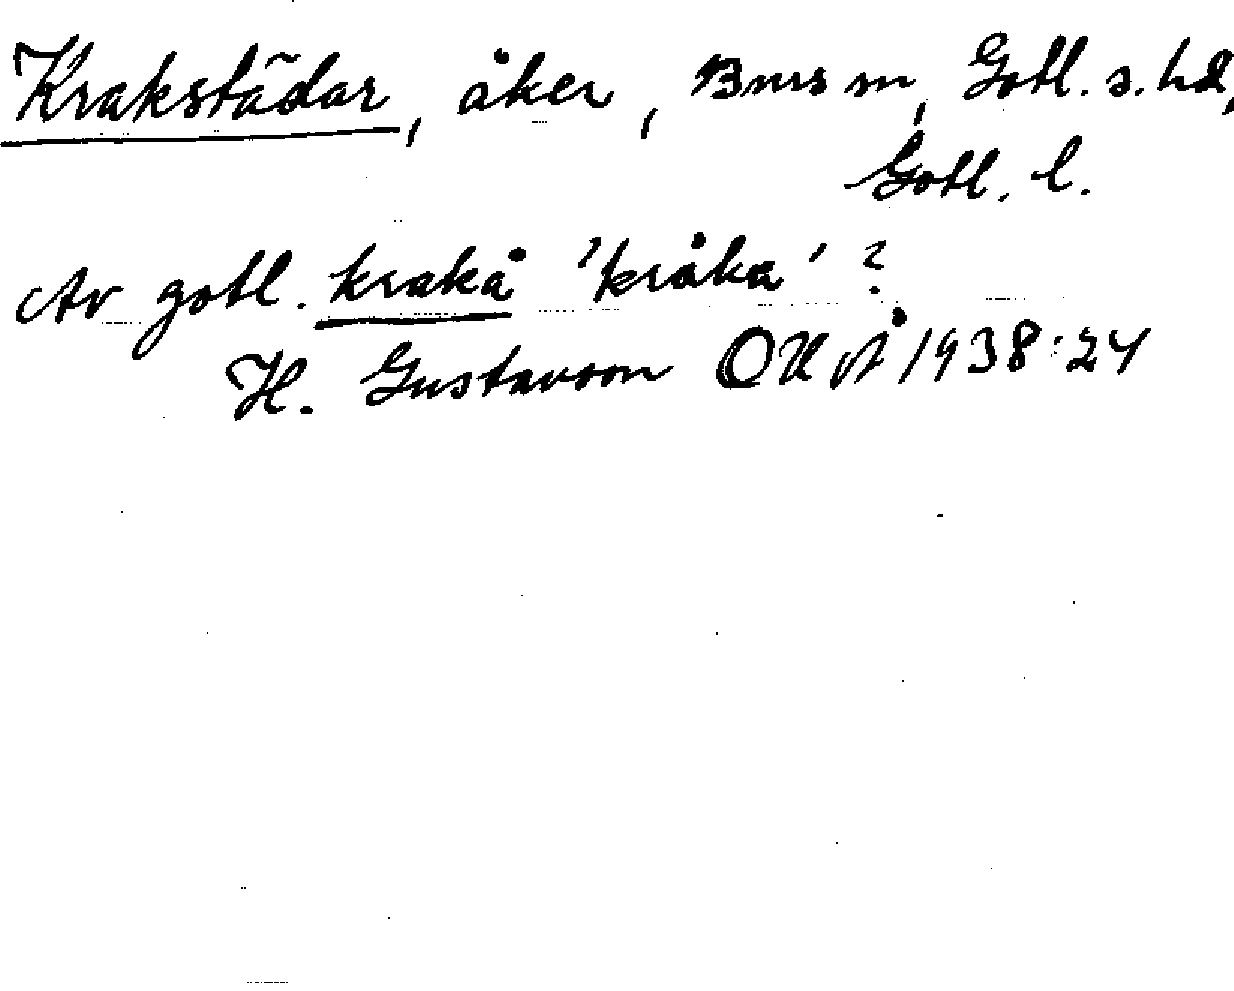 Krakstädar, åker, Burs sn, Gotl. s. hd,
Gotl. l.
Av gotl. krakå 'kråka' ?
H. Gustavson OUÅ 1938:24